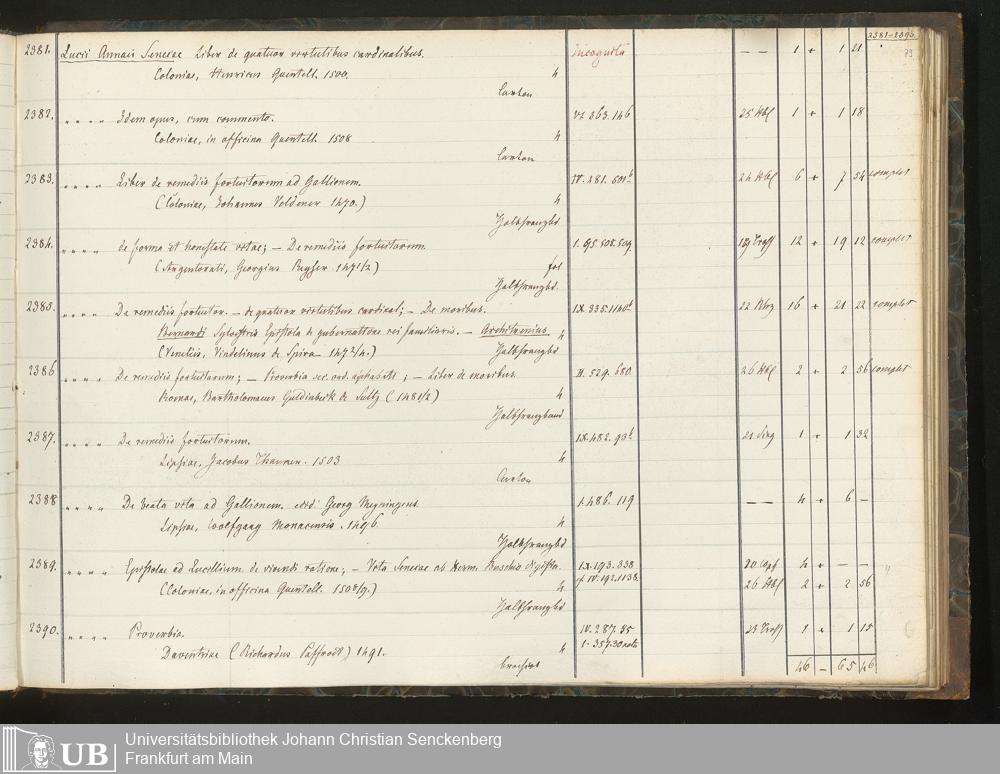 2381–2390.
79
2381. Lucii Annaei Senecae Liber de quatuor virtutibus cardinalibus. incognita – – 1 + 1 21
Coloniae, Henricus Quentell. 1500. 4
Carton
2382. " " " " Idem opus, cum commento. VI. 363. 146 25 Hbl 1 + 1 18
Coloniae, in officina Quentell. 1508 4
Carton
2383. " " " " Liber de remediis fortuitorum ad Gallionem. IV. 281. 501b 24 Hbl 6 + 7 54 complet
(Coloniae, Johannes Veldener 1470.) 4
Halbfranzbd
2384. " " " " de forma et honestate vitae; – De remediis fortuitorum. I. 95. 508. 509 19 12 + 19 12 complet
(Argentorati, Georgius Reyser. 1471/2) fol
Halbfranzbd.
2385. " " " " De remediis fortuitor. – de quatuor virtutibus cardinal; – De moribus. IX. 335. 1140d 22 16 + 21 22 complet
Bernardi Sylvestris Epistola de gubernatione rei familiaris. – 4
(Venetiis, Vindelinus de Spira – 1472/4.) Halbfranzbd
2386 " " " " De remediis fortuitorum; – Proverbia sec. ord. alphabeti; – Liber de moribus. II. 529. 680 26 Hbl 2 + 2 56 complet
Romae, Bartholomaeus Guldinbeck de Sultz (1481/2) 4
Halbfranzband
2387. " " " " De remediis fortuitorum. IX. 482. 93b 21 1 + 1 32
Lipsiae, Jacobus Thanner. 1503 4
Carton
2388 " " " " De beata vita ad Gallionem. edid. Georg I. 486. 119 – – 4 + 6 –
Lipsiae, Wolfgang Monacensis. 1496. 4
Halbfranzbd
2389. " " " " Epistolae ad Lucillium de vivendi ratione; – Vita Senecae ab Herm. Buschio digesta. IX. 193. 338 20 4 + – –
(Coloniae, in officina Quentell. 1508/9.) 4 cf IV. 192. 1138. 26 Hbl 2 + 2 56
Halbfranzbd
2390. " " " " Proverbia. IV. 287. 35 23 1 + 1 15
Daventriae (Richardus Paffroet) 1491. 4 I. 357. 30 nota
brochirt
46 – 65 46
UB Universitätsbibliothek Johann Christian Senckenberg
Frankfurt am Main